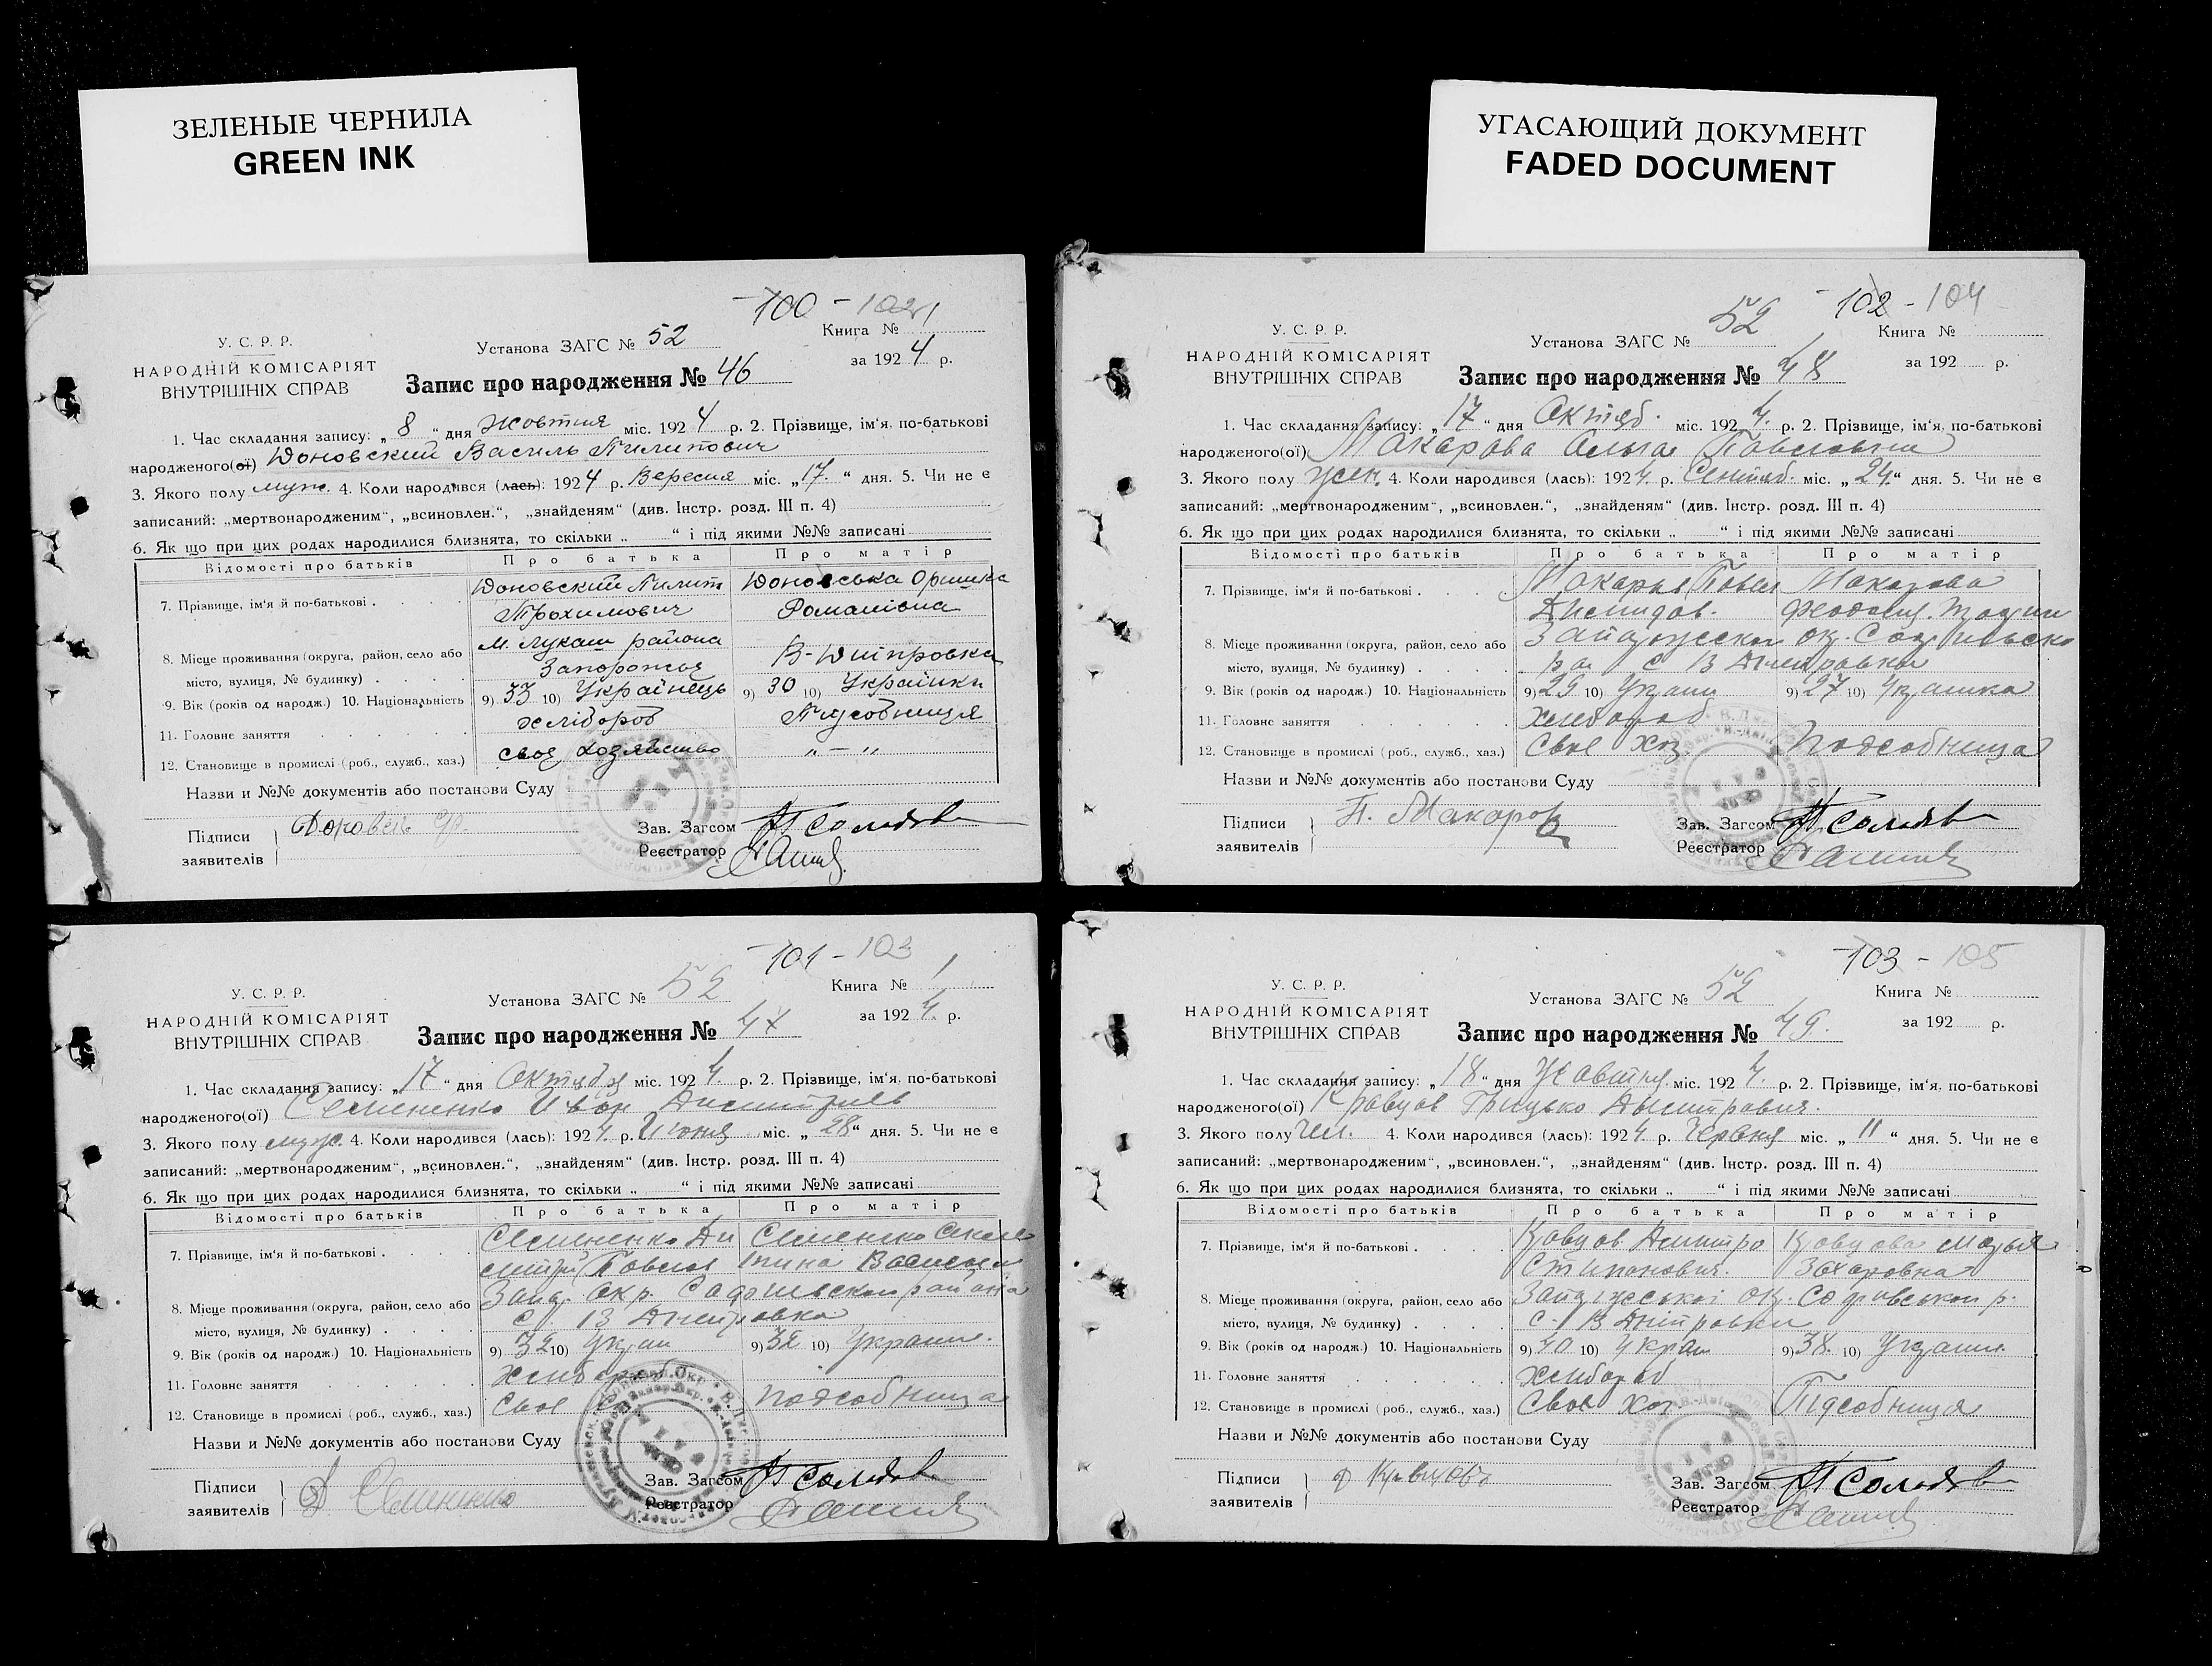 ЗЕЛЕНЫЕ ЧЕРНИЛА
GREEN INK
УГАСАЮЩИЙ ДОКУМЕНТ
FADED DOCUMENT
100 - 102
У. С. Р. Р.
НАРОДНІЙ КОМІСАРІЯТ
ВНУТРІШНІХ СПРАВ
Установа ЗАГС № 52
Книга № 1
Запис про народження № 46
за 1924 р.
1. Час складання запису: „8“ дня Жовтня міс. 1924 р. 2. Прізвище, ім‘я, по-батькові
народженого(ої) Доновский Василь Пилипович
3. Якого полу муж. 4. Коли народився (лась): 1924 р. Вересня міс. „17.“ дня. 5. Чи не є
записаний: „мертвонародженим“, „всиновлен.“, „знайденям“ (див. Інстр. розд. III п. 4)
6. Як що при цих родах народилися близнята, то скільки „ “ і під якими №№ записані
Відомості про батьків Про батька Про матір
7. Прізвище, ім‘я й по-батькові . Доновский Пилип Доновська Оришка
Трохимович Романівна
8. Місце проживання (округа, район, село або М. Лукаш района
місто, вулиця, № будинку) Запорожья В-Дніпровка
9. Вік (років од народж.) 10. Національність 9) 33 10) Українець 9) 30 10) Українки
11. Головне заняття хлібороб Підсобниця
12. Становище в промислі (роб., служб., хаз.) своя хозяйство „ — „
Назви и №№ документів або постанови Суду
Підписи
заявителів
Зав. Загсом
Реєстратор
102 - 104
У. С. Р. Р.
НАРОДНІЙ КОМІСАРІЯТ
ВНУТРІШНІХ СПРАВ
Установа ЗАГС № 52
Книга №
Запис про народження № 48
за 192 р.
1. Час складання запису: „17“ дня Октяб. міс. 1924. р. 2. Прізвище, ім‘я, по-батькові
народженого(ої) Макарова Ольга Павловна
3. Якого полу жен. 4. Коли народився (лась): 1924. р. Сентяб. міс. „24.“ дня. 5. Чи не є
записаний: „мертвонародженим“, „всиновлен.“, „знайденям“ (див. Інстр. розд. III п. 4)
6. Як що при цих родах народилися близнята, то скільки „ “ і під якими №№ записані
Відомості про батьків Про батька Про матір
7. Прізвище, ім‘я й по-батькові . Макарова
8. Місце проживання (округа, район, село або
місто, вулиця, № будинку) с В Днепровка
9. Вік (років од народж.) 10. Національність 9) 29 10) Украин 9) 27 10)
11. Головне заняття Хлебороб
12. Становище в промислі (роб., служб., хаз.) Свое хоз Подсобница
Назви и №№ документів або постанови Суду
Підписи
заявителів П. Макаров
Зав. Загсом
Реєстратор
101 - 103
У. С. Р. Р.
НАРОДНІЙ КОМІСАРІЯТ
ВНУТРІШНІХ СПРАВ
Установа ЗАГС № 52
Книга № 1
Запис про народження № 47
за 1924. р.
1. Час складання запису: „17“ дня Октября міс. 1924. р. 2. Прізвище, ім‘я, по-батькові
народженого(ої) Семененко Иван Дмитриев
3. Якого полу муж. 4. Коли народився (лась): 1924. р. Июня міс. „28“ дня. 5. Чи не є
записаний: „мертвонародженим“, „всиновлен.“, „знайденям“ (див. Інстр. розд. III п. 4)
6. Як що при цих родах народилися близнята, то скільки „ “ і під якими №№ записані
Відомості про батьків Про батька Про матір
7. Прізвище, ім‘я й по-батькові . Семененко Ди
митрий Павлов
8. Місце проживання (округа, район, село або Запор. окр. района
місто, вулиця, № будинку) с. В Днепровка
9. Вік (років од народж.) 10. Національність 9) 32 10) Украи 9) 32 10) Украин.
11. Головне заняття Хлебороб
12. Становище в промислі (роб., служб., хаз.) Свое хоз подсобница
Назви и №№ документів або постанови Суду
Підписи
заявителів Д Семененко
Зав. Загсом
Реєстратор
103 - 105
У. С. Р. Р.
НАРОДНІЙ КОМІСАРІЯТ
ВНУТРІШНІХ СПРАВ
Установа ЗАГС № 52
Книга №
Запис про народження № 49.
за 192 р.
1. Час складання запису: „18“ дня Жовтня міс. 1924. р. 2. Прізвище, ім‘я, по-батькові
народженого(ої) Кравцов Грицько Дмитрович.
3. Якого полу чол. 4. Коли народився (лась): 1924. р. Червня міс. „11“ дня. 5. Чи не є
записаний: „мертвонародженим“, „всиновлен.“, „знайденям“ (див. Інстр. розд. III п. 4)
6. Як що при цих родах народилися близнята, то скільки „ “ і під якими №№ записані
Відомості про батьків Про батька Про матір
7. Прізвище, ім‘я й по-батькові . Кравцов Дмитро Кравцова Марья
Степанович. Захаровна
8. Місце проживання (округа, район, село або Запоріжської окр. р.
місто, вулиця, № будинку) с. В Дніпровки
9. Вік (років од народж.) 10. Національність 9) 40 10) Украи 9) 38. 10) Украин.
11. Головне заняття хлебороб
12. Становище в промислі (роб., служб., хаз.) Свое хоз Підсобниця
Назви и №№ документів або постанови Суду
Підписи
заявителів Д Кравцовъ
Зав. Загсом
Реєстратор